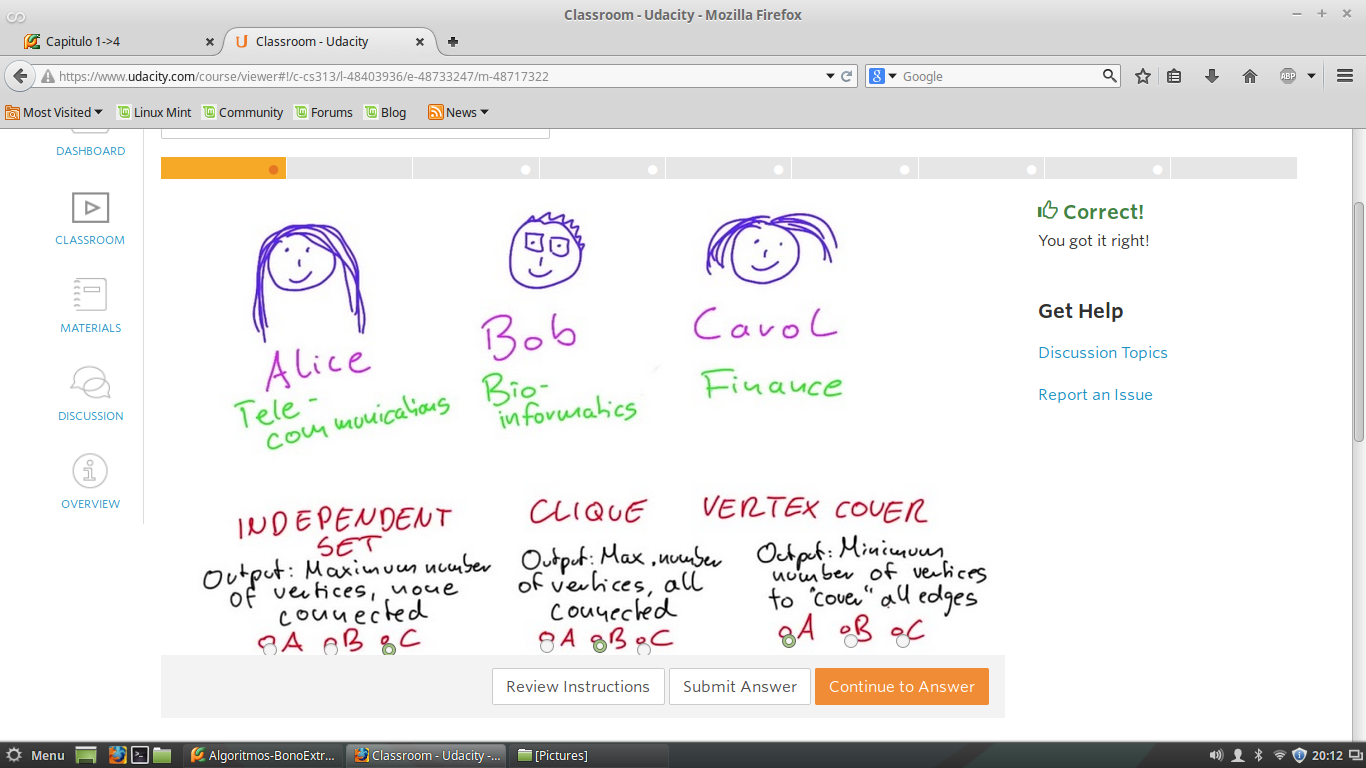 Classroom - Udacity - Mozilla Firefox
Capitulo 1->4
Classroom - Udacity
https://www.udacity.com/course/viewer#!/c-cs313/l-48403936/e-48733247/m-48717322
Google
ABP
Most Visited
Linux Mint
Community
Forums
Blog
News
DASHBOARD
CLASSROOM
MATERIALS
DISCUSSION
OVERVIEW
Correct!
You got it right!
Get Help
Discussion Topics
Report an Issue
Alice
Tele-
communications
Bob
Bio-
informatics
Carol
Finance
INDEPENDENT
SET
Output: Maximum number
of vertices, none
connected
A B C
CLIQUE
Output: Max. number
of vertices, all
connected
A B C
VERTEX COVER
Output: Minimum
number of vertices
to "cover" all edges
A B C
Review Instructions
Submit Answer
Continue to Answer
Menu
Algoritmos-BonoExtr...
Classroom - Udacity -...
[Pictures]
20:12